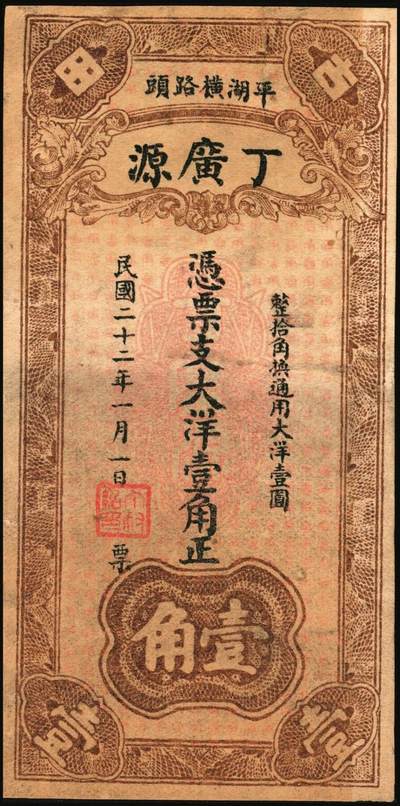 平湖橫路頭
丁廣源
整拾角換通用大洋壹圓
憑票支大洋壹角正
民國二十二年一月一日
票
壹角
壹
壹